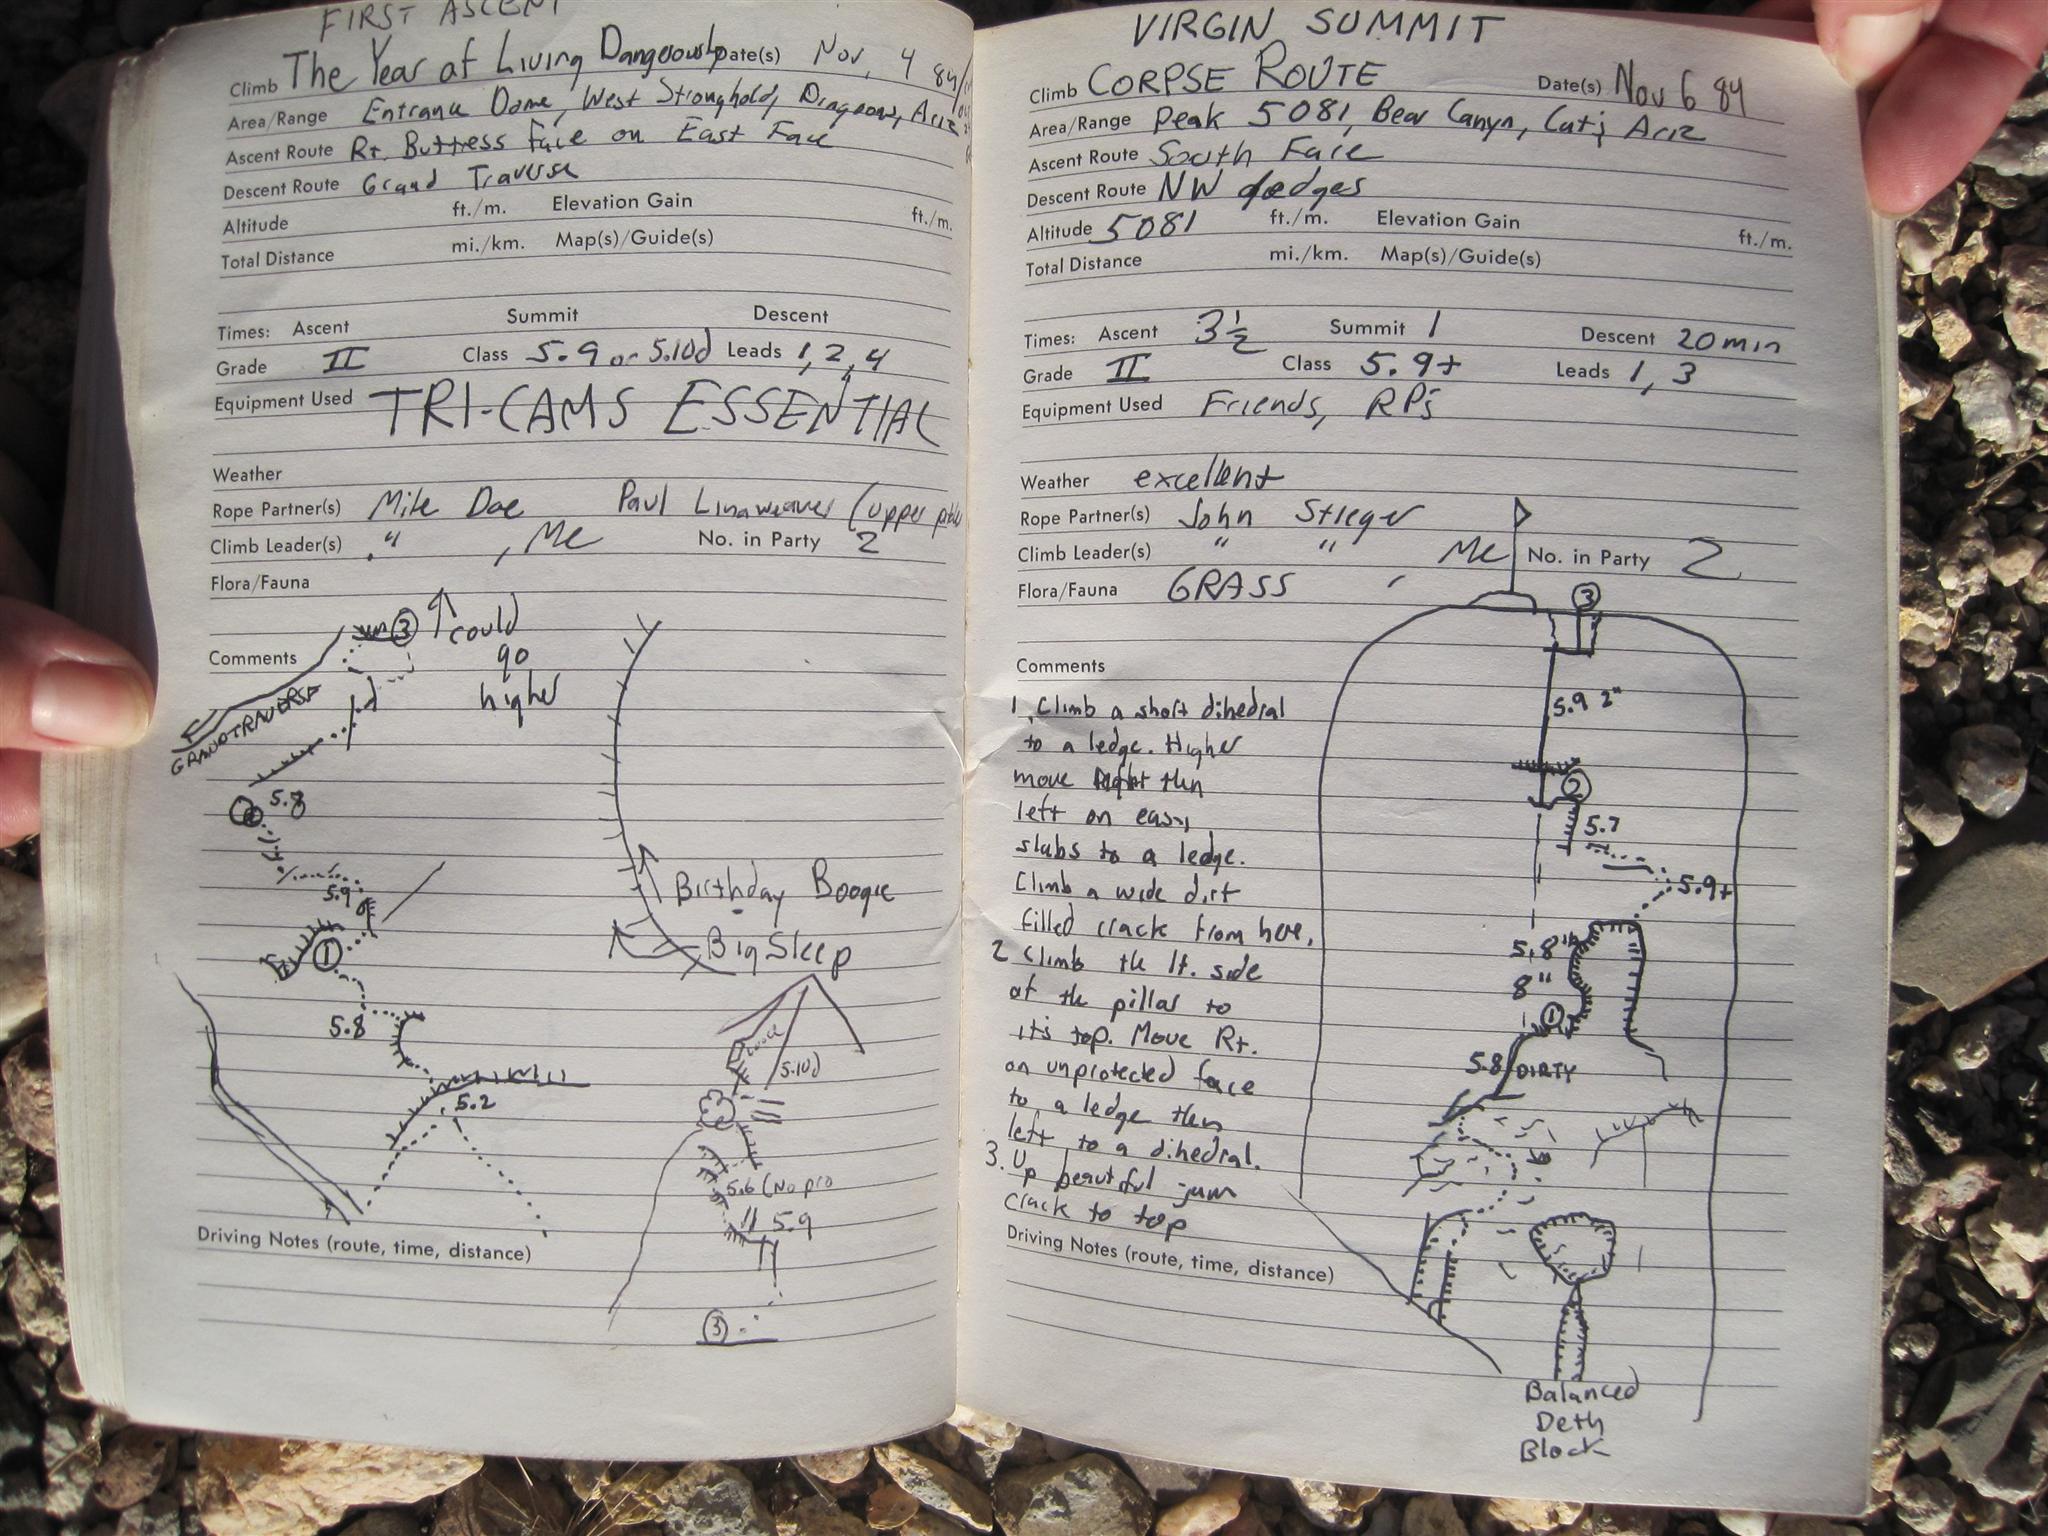 FIRST ASCENT
Climb The Year of Living Dangerously Date(s) Nov, 4 84/
Area/Range Entrance Dome, West Stronghold, Dragoons, Ariz
Ascent Route Rt. Buttress face on East Face
Descent Route Grand Traverse
Altitude ft./m. Elevation Gain ft./m.
Total Distance mi./km. Map(s)/Guide(s)
Times: Ascent Summit Descent
Grade II Class 5.9 or 5.10d Leads 1, 2, 4
Equipment Used TRI-CAMS ESSENTIAL
Weather
Rope Partner(s) Mike Dae Paul Linaweaver (upper
Climb Leader(s) " , Me No. in Party 2
Flora/Fauna
3 could
go
higher
Comments
GRAND TRAVERSE
5.8
5.9
Birthday Boogie
1
Big Sleep
5.8
loose
5.10d
5.2
5.6 (No pro
5.9
Driving Notes (route, time, distance)
3
VIRGIN SUMMIT
Climb CORPSE ROUTE Date(s) Nov 6 84
Area/Range Peak 5081, Bear Canyn, Cat; Ariz
Ascent Route South Face
Descent Route NW ledges
Altitude 5081 ft./m. Elevation Gain ft./m.
Total Distance mi./km. Map(s)/Guide(s)
Times: Ascent 3 1/2 Summit 1 Descent 20 min
Grade II Class 5.9+ Leads 1, 3
Equipment Used Friends, RP's
Weather excellent
Rope Partner(s) John Stieger
Climb Leader(s) " " , Me No. in Party 2
Flora/Fauna GRASS
Comments
1. Climb a short dihedral
to a ledge. Higher
move right then
left on easy
slabs to a ledge.
Climb a wide dirt
filled crack from here.
2 Climb the lt. side
of the pillar to
it's top. Move Rt.
on unprotected face
to a ledge then
left to a dihedral.
3. Up beautiful jam
crack to top
3
5.9 2"
2
5.7
5.9+
5.8
8"
1
5.8 DIRTY
Driving Notes (route, time, distance)
Balanced
Deth
Block